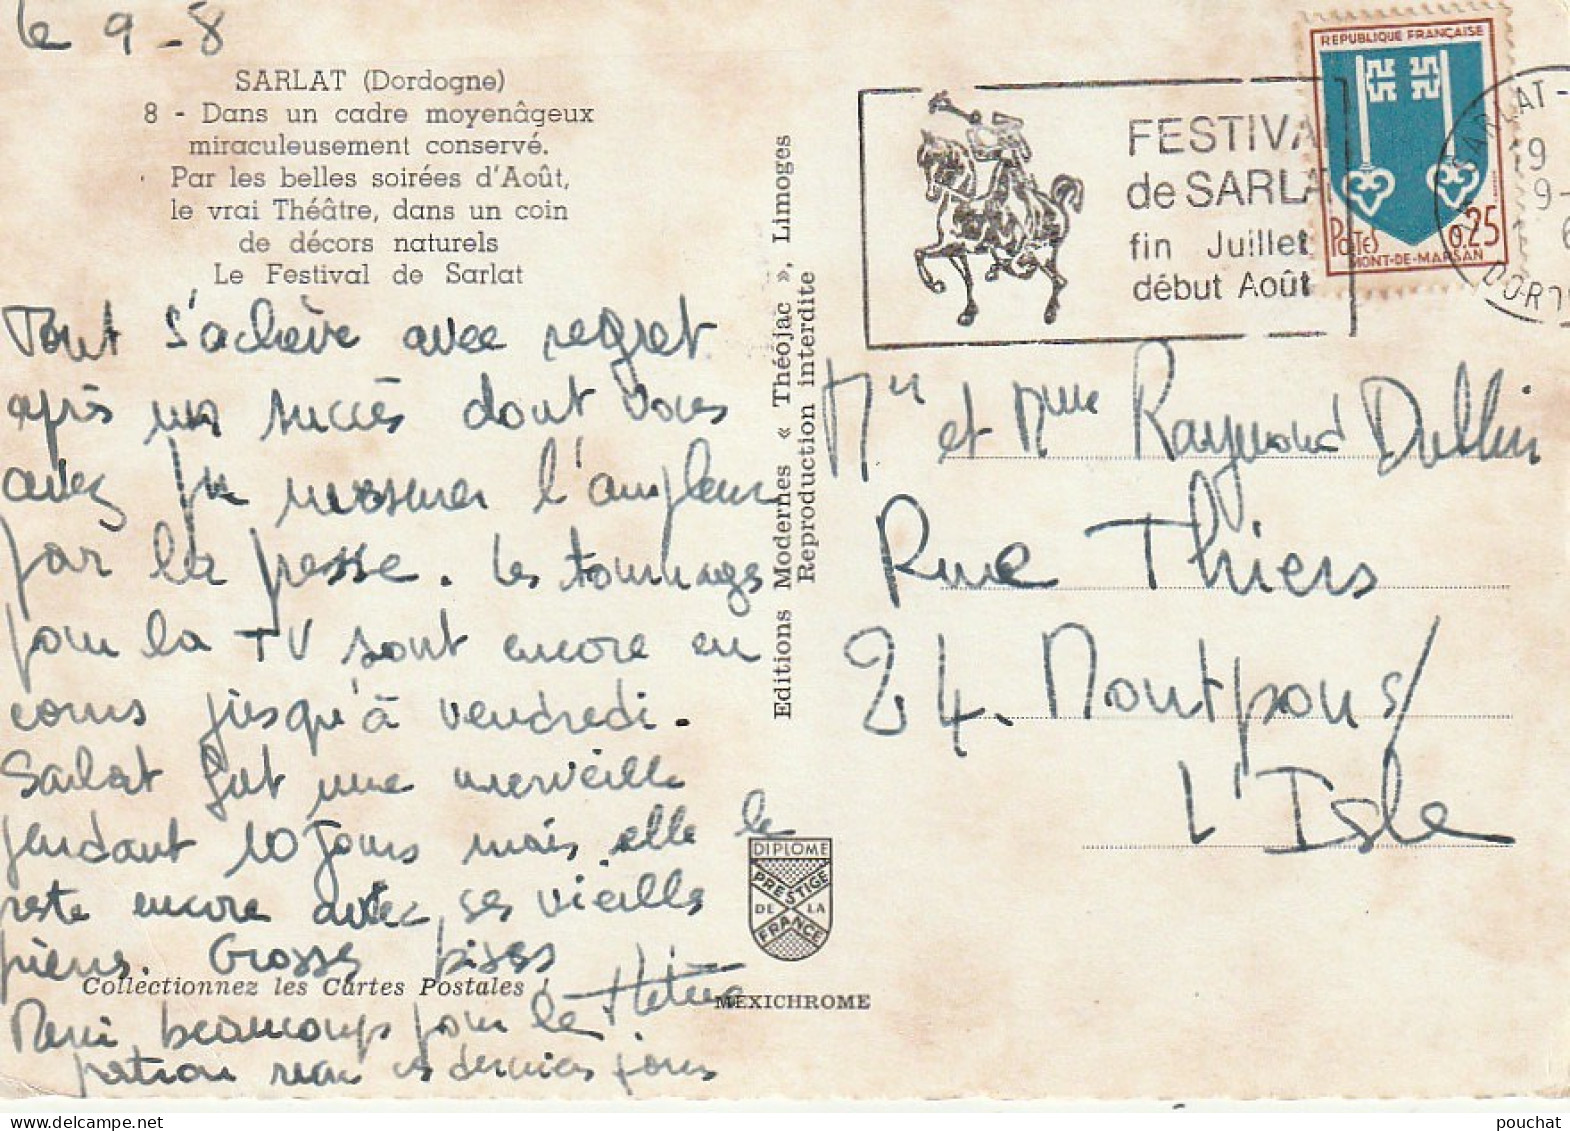 le 9-8
SARLAT (Dordogne)
8 - Dans un cadre moyenâgeux
miraculeusement conservé.
Par les belles soirées d'Août,
le vrai Théâtre, dans un coin
de décors naturels
Le Festival de Sarlat
Tout s'achève avec regret
après un succès dont vous
avez pu mesurer l'ampleur
par la presse. Les tournages
pour la TV sont encore en
cours jusqu'à vendredi.
Sarlat fut une merveille
pendant 10 jours mais elle le
reste encore avec ses vieilles
pierres. Grosses bises
Collectionnez les Cartes Postales !
Merci beaucoup pour la
reçu ces derniers jours
Editions Modernes « Théojac », Limoges
Reproduction interdite
DIPLOME
PRESTIGE
DE LA
FRANCE
MEXICHROME
FESTIVAL
de SARLAT
fin Juillet
début Août
REPUBLIQUE FRANÇAISE
POSTES
0,25
MONT-DE-MARSAN
SARLAT-
19
9-
6
DORD
Mr et Mme Raymond Dullin
Rue Thiers
24. Montpon s/
L'Isle
pouchat